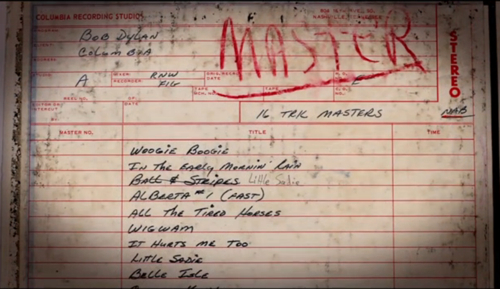 COLUMBIA RECORDING STUDIOS
BOB DYLAN
COLUMBIA
MASTER
STEREO
A
RNW
FIG
16 TRK MASTERS
NAB
MASTER NO.
TITLE
TIME
WOOGIE BOOGIE
IN THE EARLY MORNIN' RAIN
BALL & STRIPES Little Sadie
ALBERTA #1 (FAST)
ALL THE TIRED HORSES
WIGWAM
IT HURTS ME TOO
LITTLE SADIE
BELLE ISLE